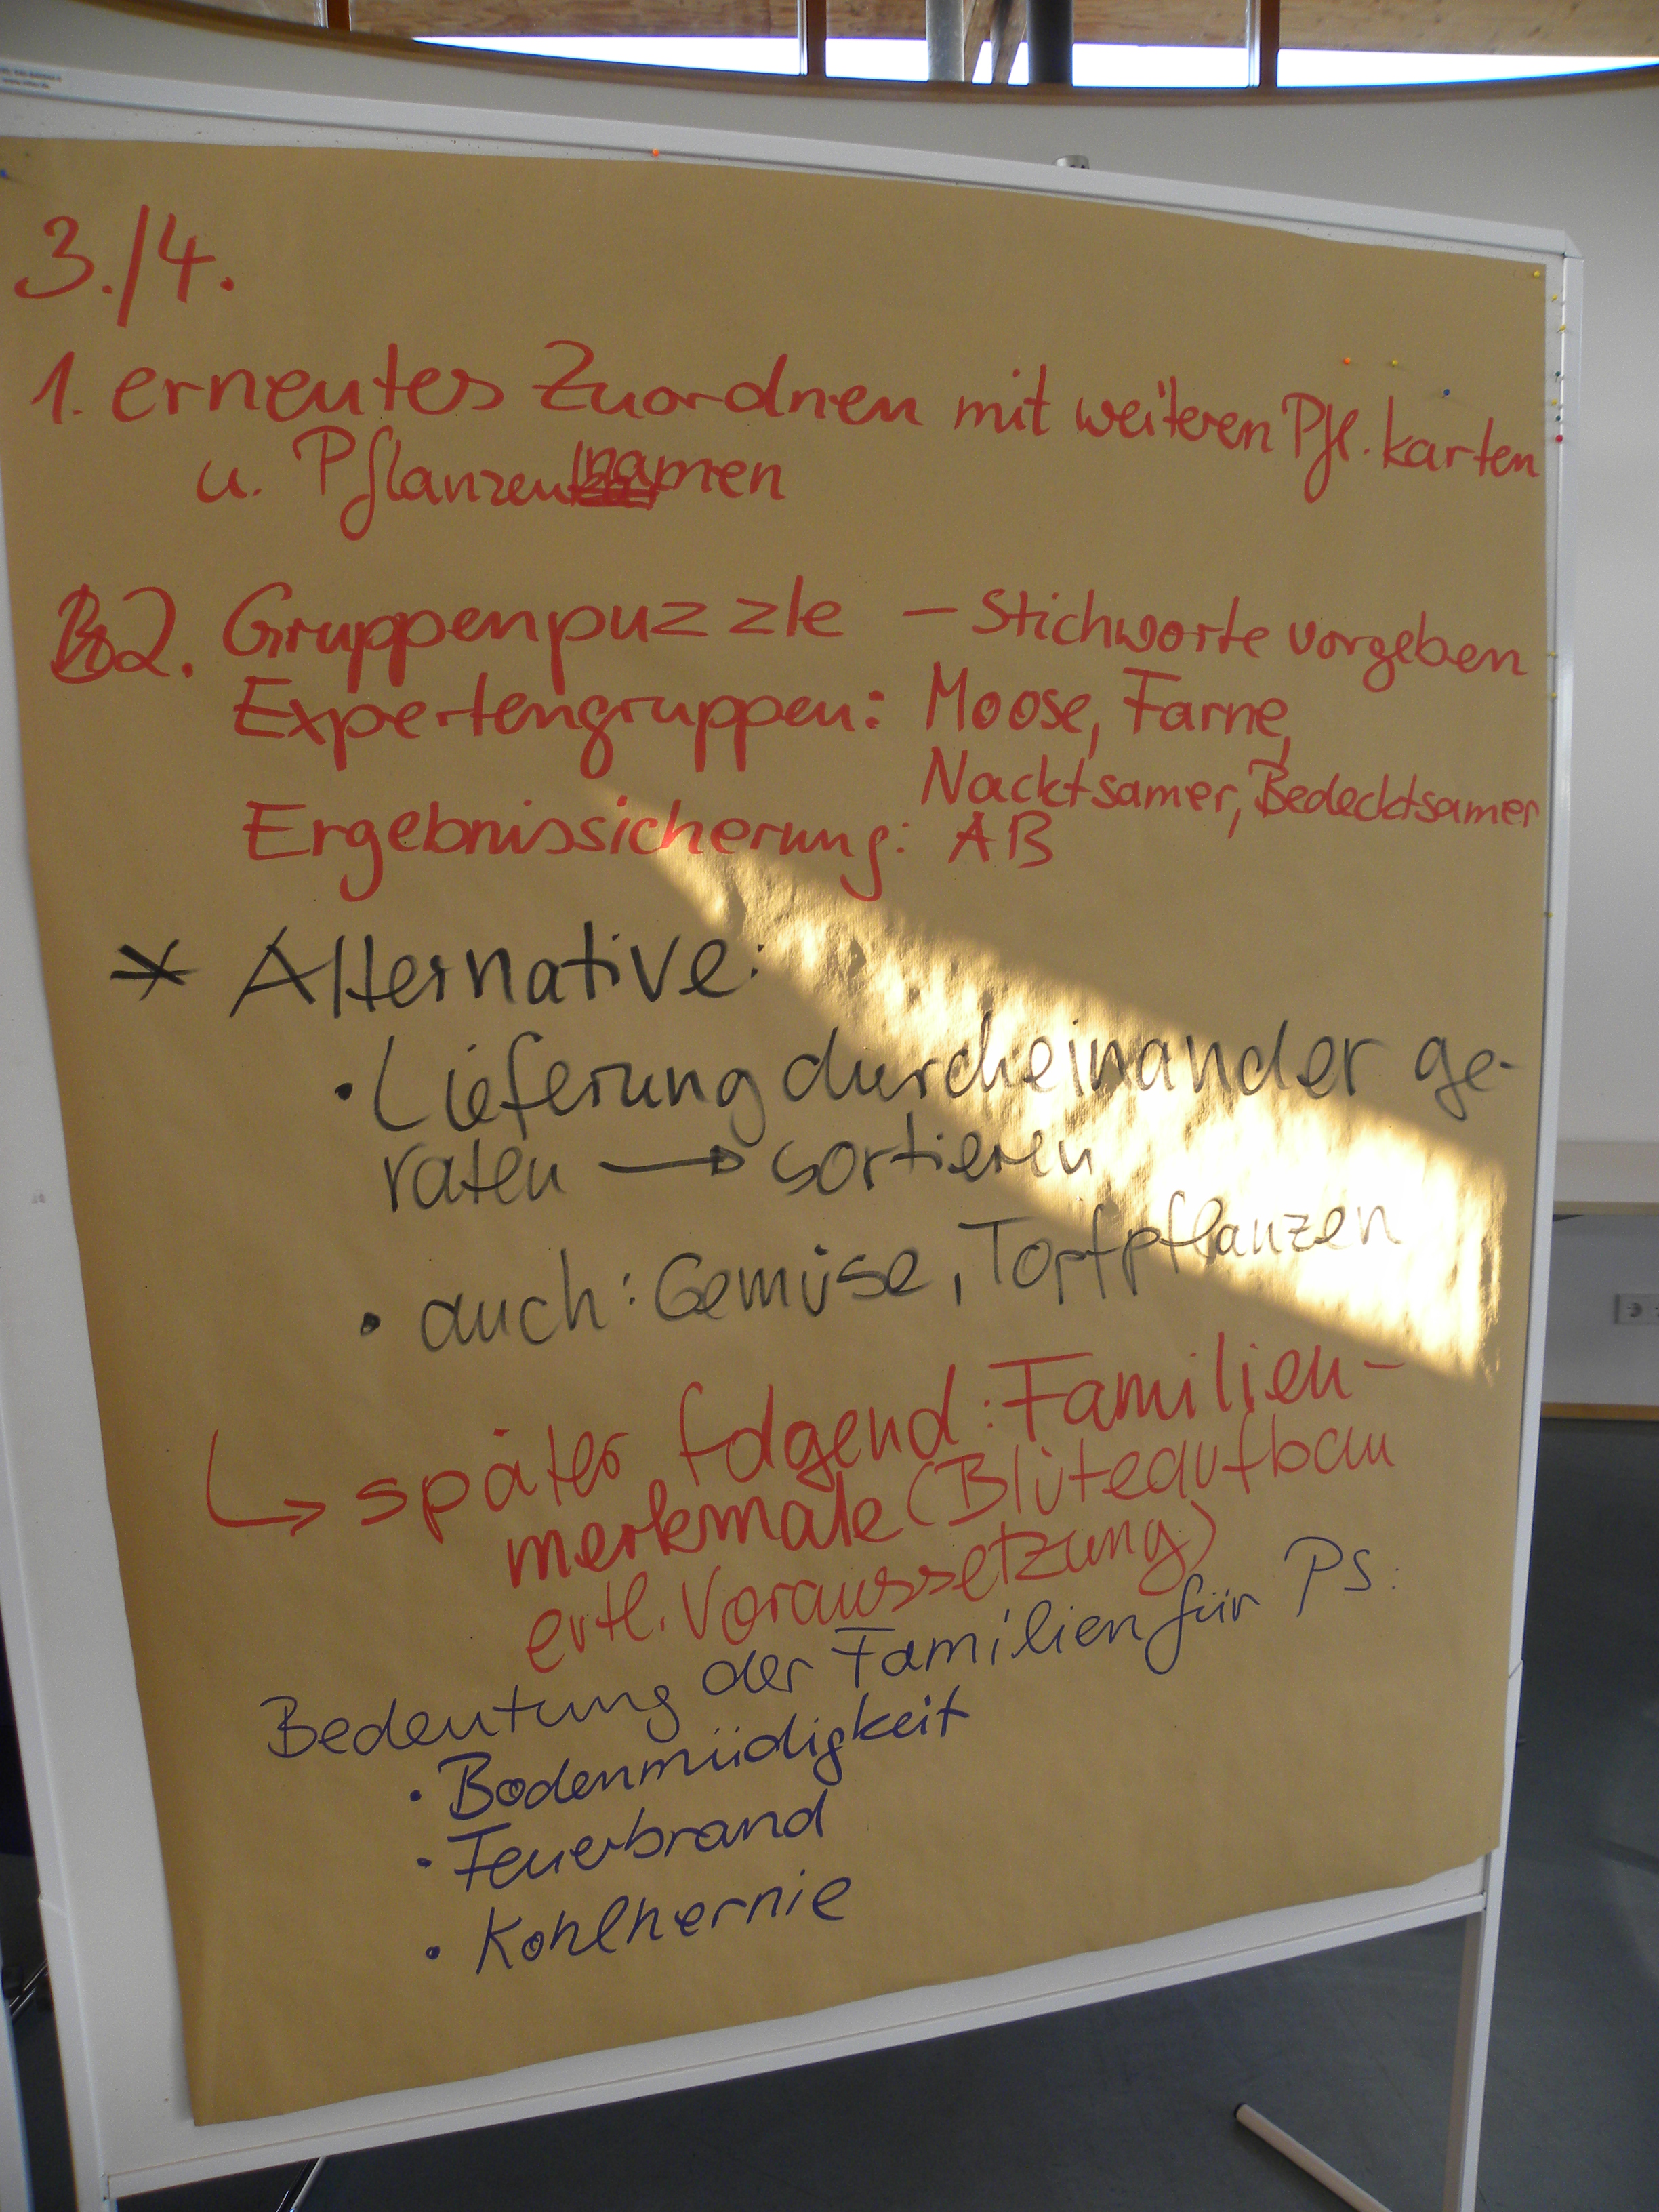 3./4.
1. erneutes Zuordnen mit weiteren Pfl.karten
u. Pflanzennamen
2. Gruppenpuzzle – Stichworte vorgeben
Expertengruppen: Moose, Farne,
Nacktsamer, Bedecktsamer
Ergebnissicherung: AB
* Alternative:
• Lieferung durcheinander ge-
raten → sortieren
• auch: Gemüse, Topfpflanzen
↳ später folgend: Familien-
merkmale (Blüteaufbau
evtl. Voraussetzung)
Bedeutung der Familien für PS:
• Bodenmüdigkeit
• Feuerbrand
• Kohlhernie